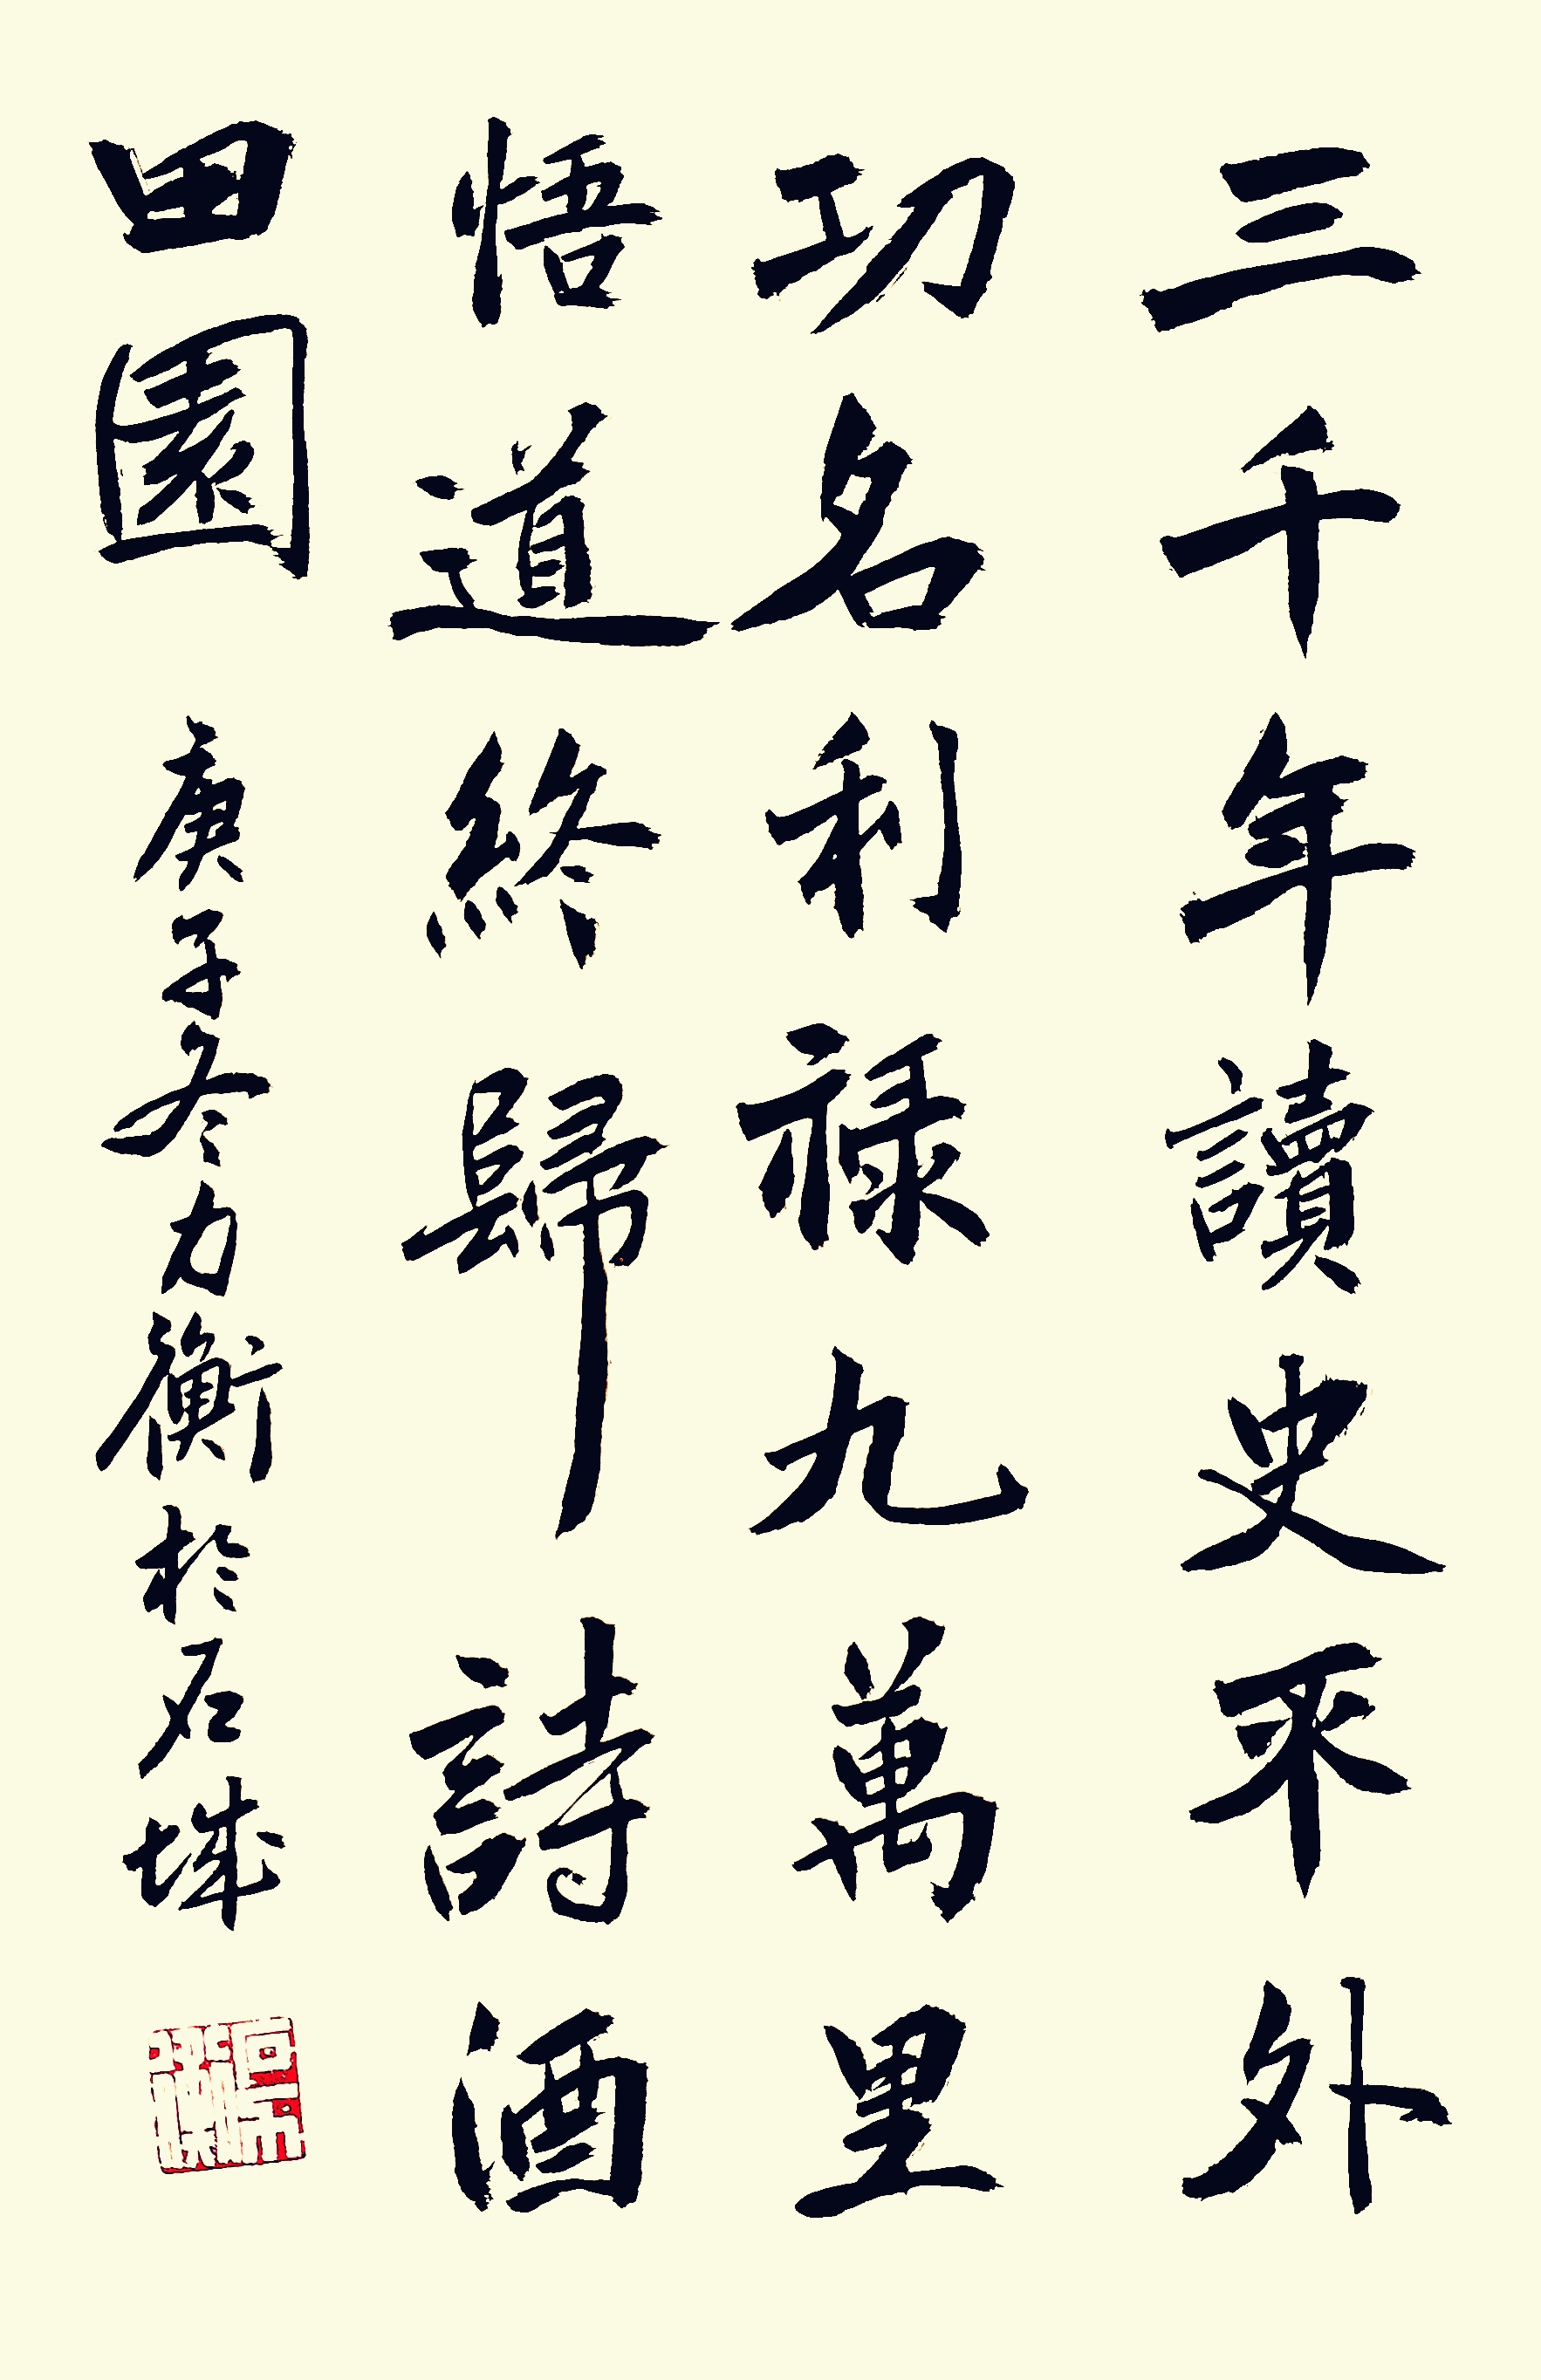 三千年讀史不外
功名利祿九萬里
悟道終歸詩酒
田園 庚子冬力衡於石城